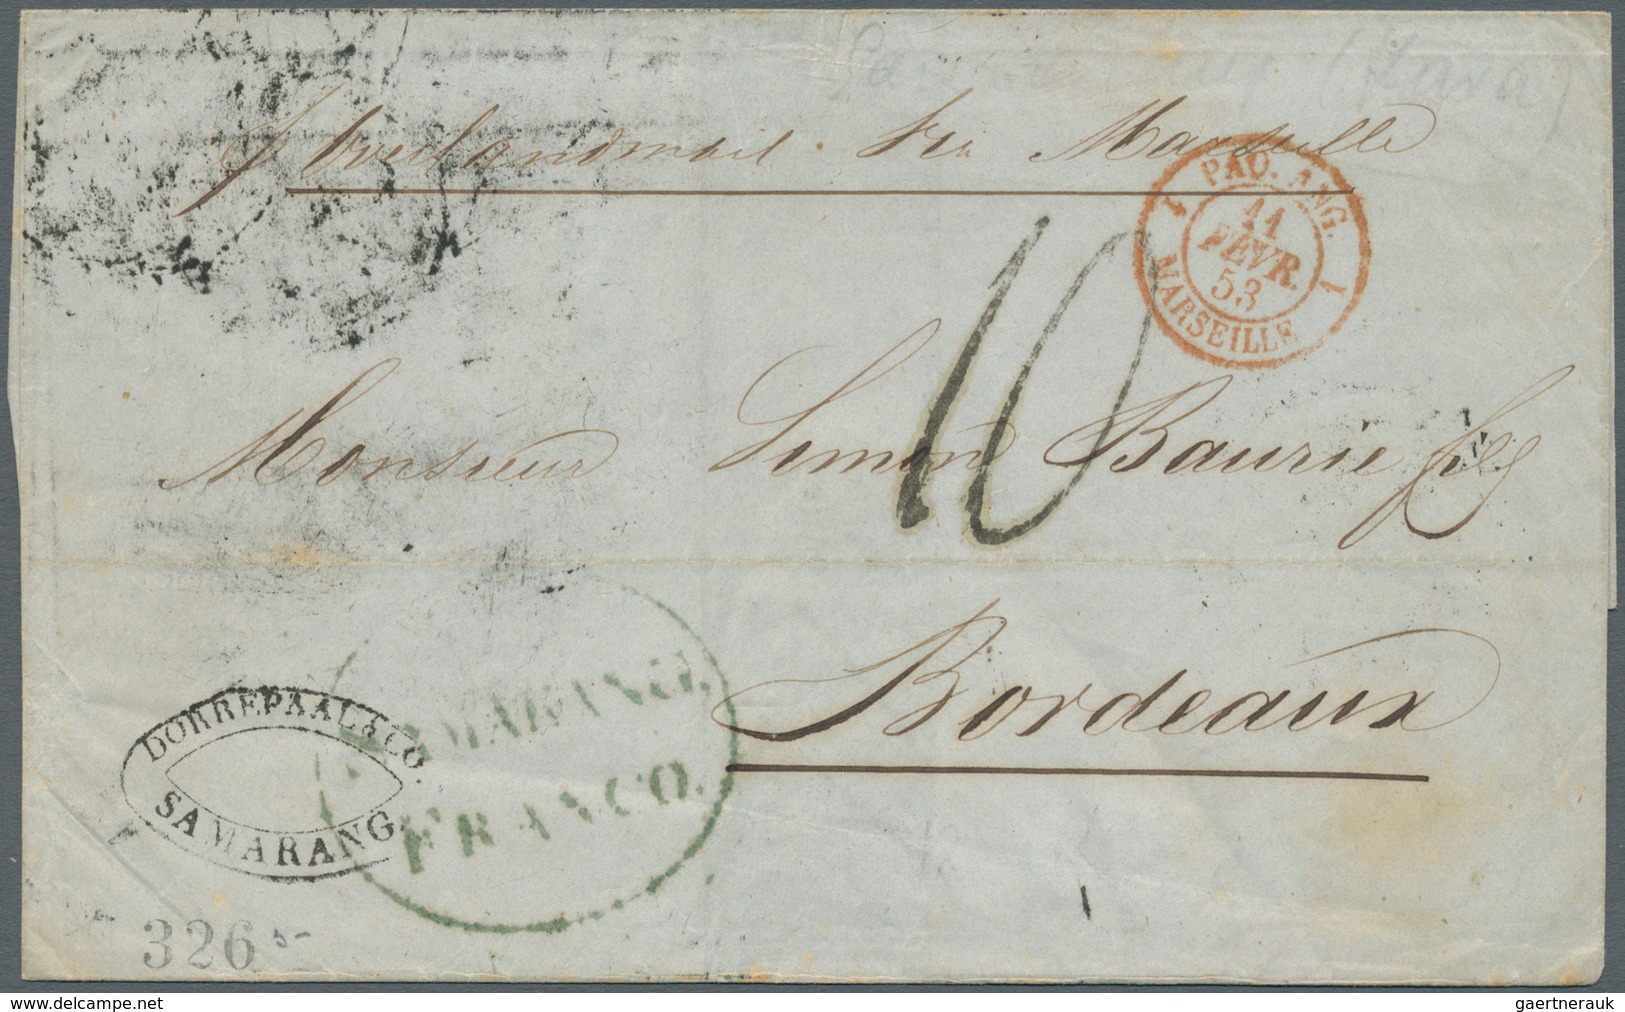 (Java)
p. Overlandmail. Via Marseille
PAQ. ANG.
11
FEVR.
53
MARSEILLE
1 1
10
Monsieur Simon Baurie fils
Bordeaux
SAMARANG.
FRANCO.
DORREPAAL & CO.
SAMARANG
326
gaertnerauk
www.delcampe.net